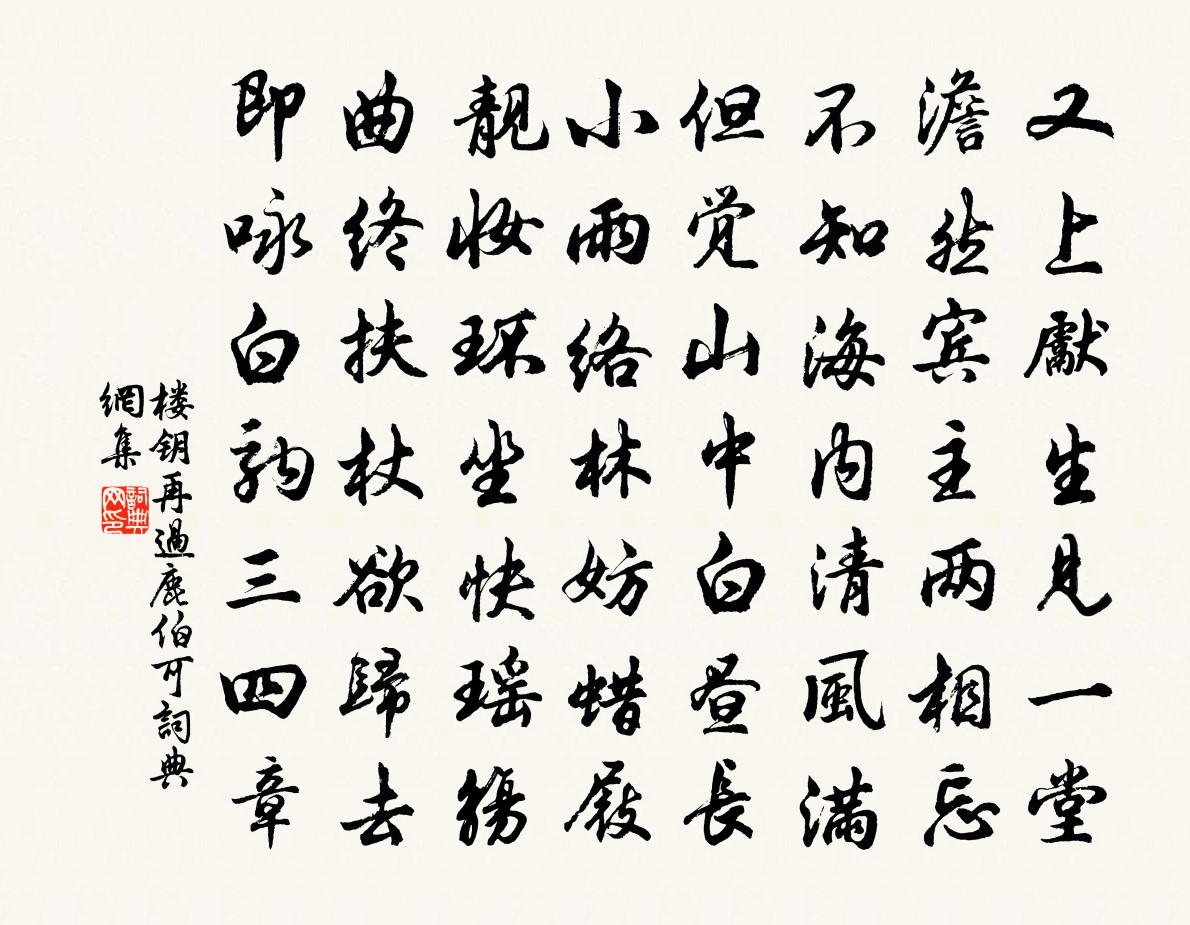 又上獻生見一堂
澹然宾主两相忘
不知海内清風滿
但觉山中白昼長
小雨络林妨蜡屐
靓妆环坐快瑶觞
曲终扶杖欲歸去
即咏白驹三四章
楼钥再過鹿伯可詞典
網集
詞典
网印